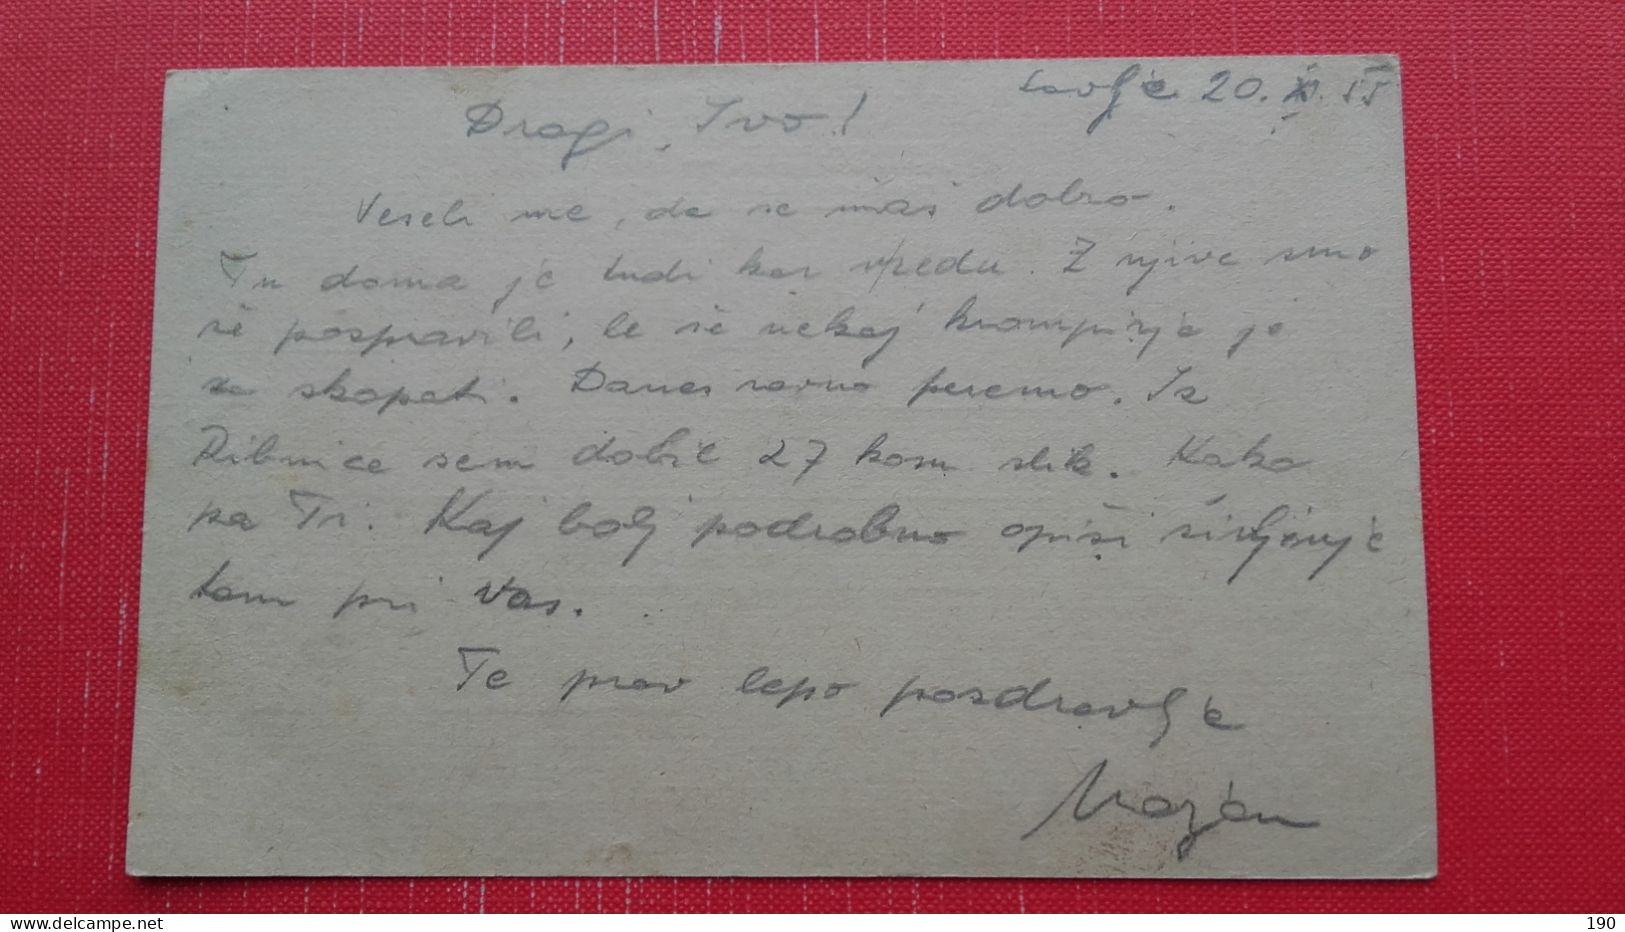 Savlje 20. X. 55
Dragi Ivo!
Veseli me, da se imaš dobro.
Tu doma je tudi kar vredu. Z njive smo
že pospravili, le še nekaj krompirja je
za skopati. Danes ravno peremo. Iz
Ribnice sem dobil 27 kom slik. Kako
pa Ti. Kaj bolj podrobno opiši življenje
tam pri vas.
Te prav lepo pozdravlja
Marjan
delcampe.net
190